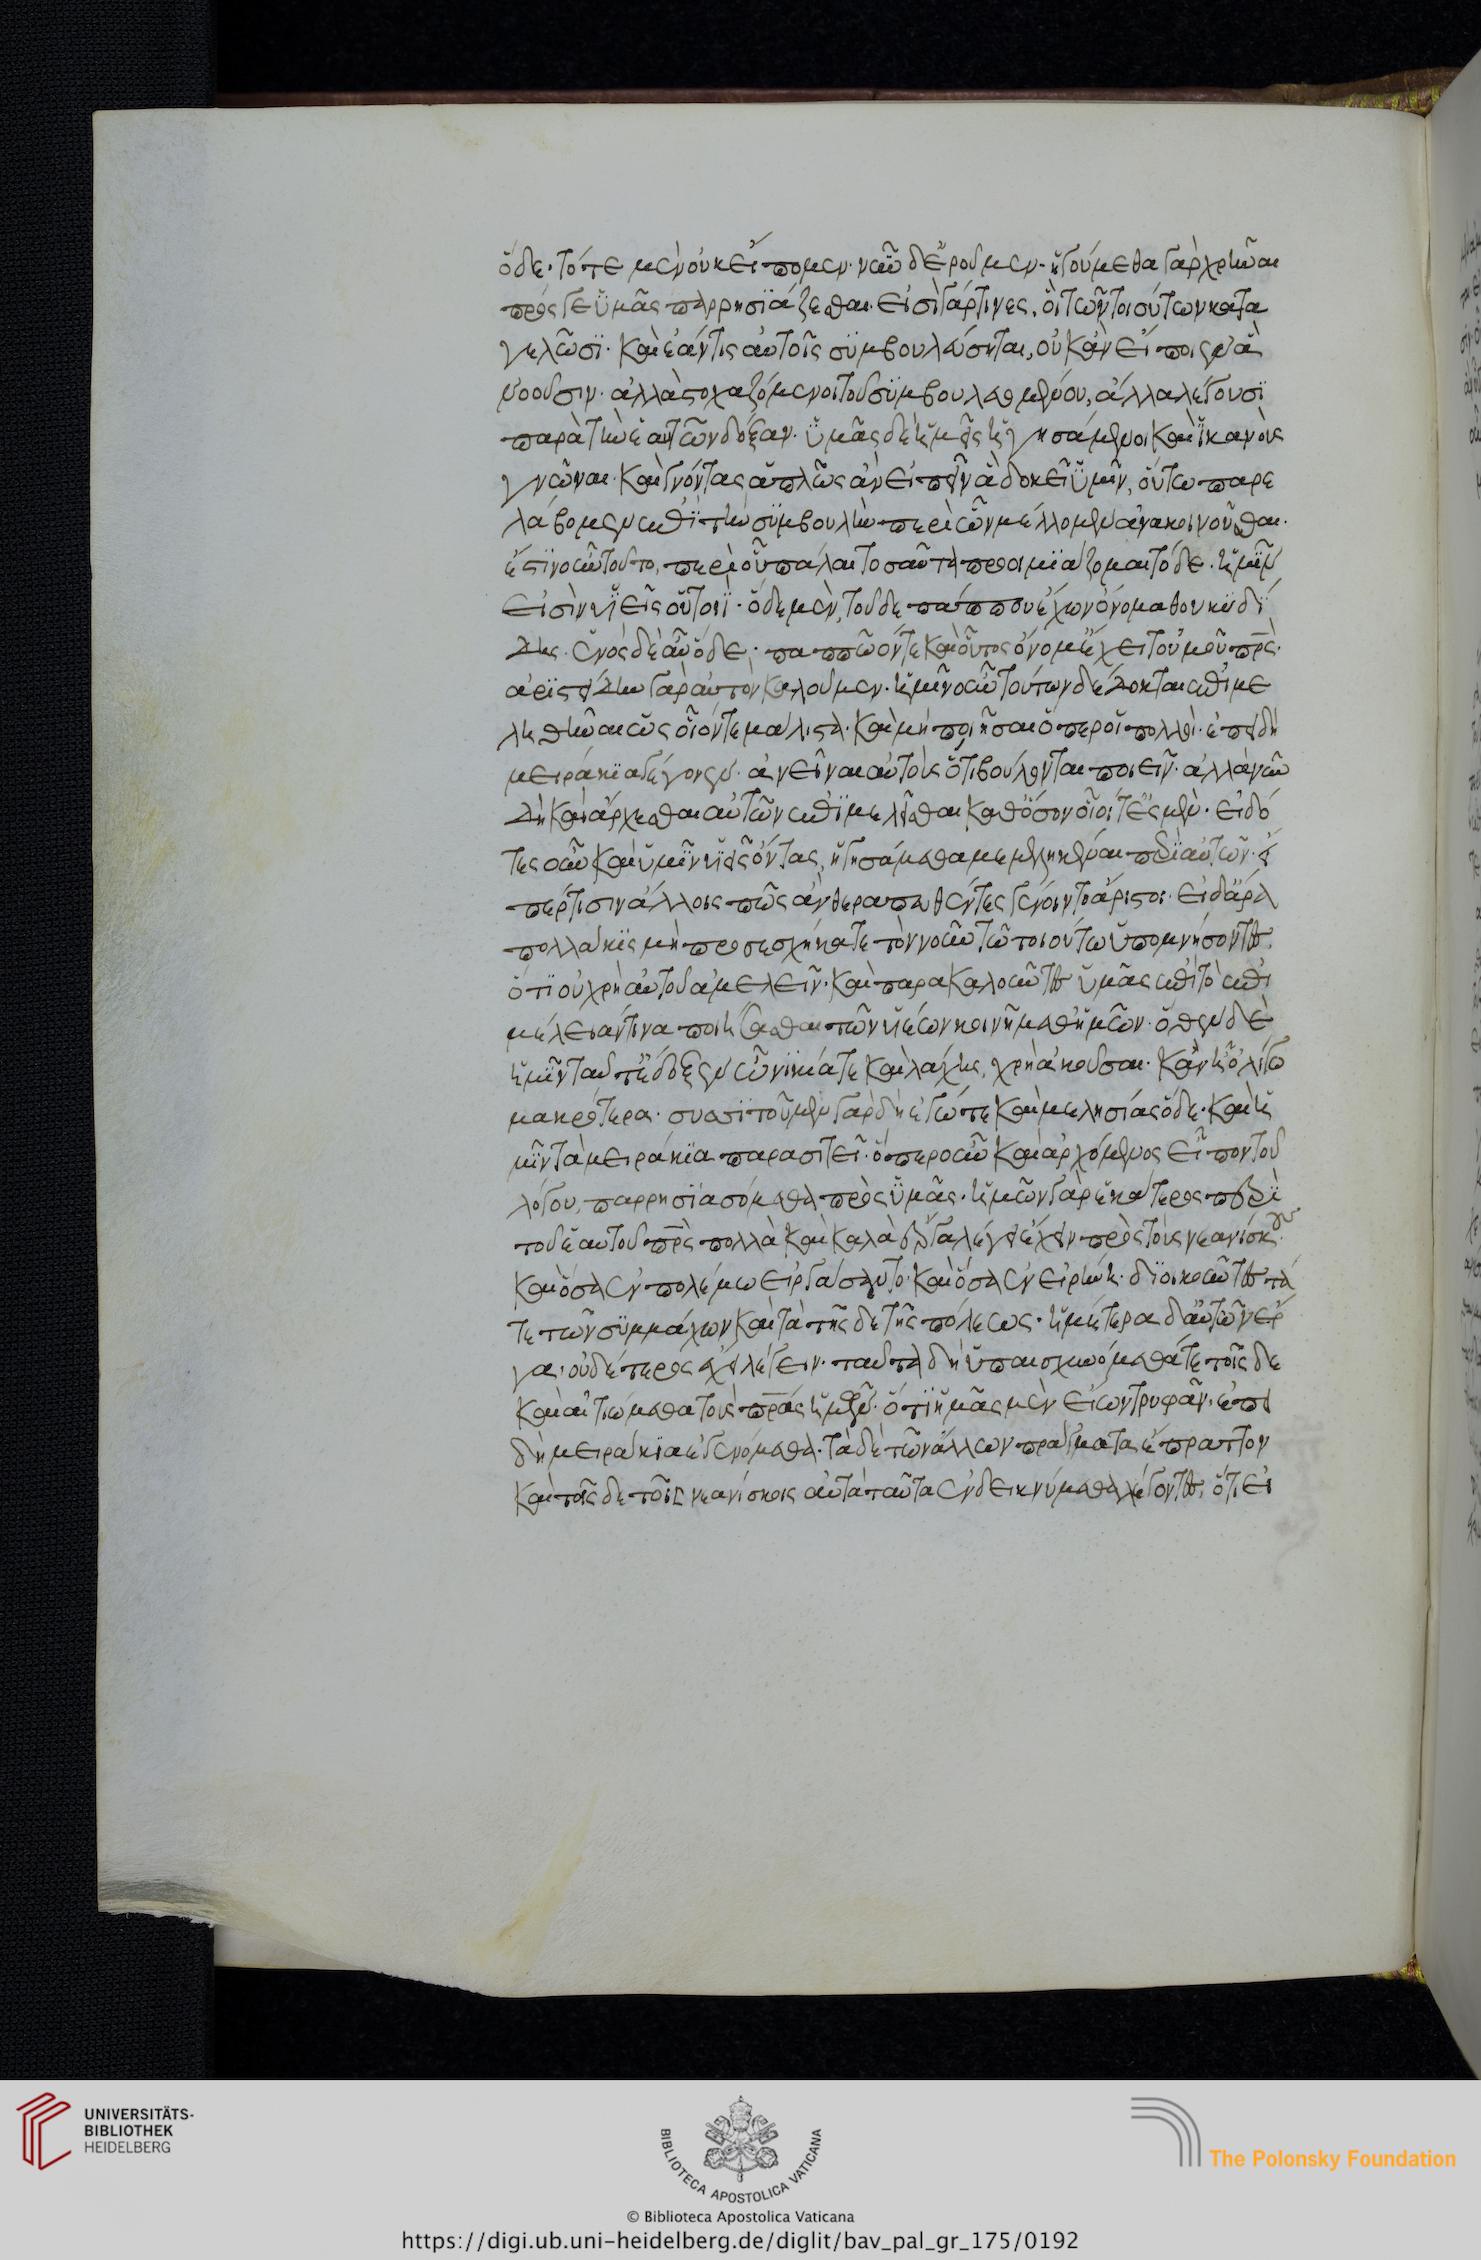 ὅδε· τότε μὲν οὐκ εἴπομεν· νῦν δ' ἐροῦμεν· ἡγούμεθα γὰρ χρῆναι
πρός γε ὑμᾶς παρρησιάζεσθαι· εἰσὶ γάρ τινες, οἳ τῶν τοιούτων κατα
γελῶσι· καὶ ἐάν τις αὐτοῖς συμβουλεύσηται, οὐκ ἂν εἴποιεν ἃ
νοοῦσιν· ἀλλὰ στοχαζόμενοι τοῦ συμβουλευομένου, ἄλλα λέγουσι
παρὰ τὴν ἑαυτῶν δόξαν· ὑμᾶς δὲ ἡμεῖς ἡγησάμενοι καὶ ἱκανοὺς
γνῶναι· καὶ γνόντας ἁπλῶς ἂν εἰπεῖν ἃ δοκεῖ ὑμῖν, οὕτω παρε
λάβομεν ἐπὶ τὴν συμβουλὴν περὶ ὧν μέλλομεν ἀνακοινοῦσθαι·
ἔστιν οὖν τοῦτο, περὶ οὗ πάλαι τοσαῦτα προοιμιάζομαι τόδε· ἡμῖν
εἰσὶν υἱεῖς οὑτοιί· ὅδε μὲν, τοῦδε πάππου ἔχων ὄνομα θουκυδί
δης· ἐμὸς δὲ αὖ ὅδε· παππῷον τε καὶ οὗτος ὄνομ' ἔχει τοὐμοῦ πρς·
ἀριστείδην γὰρ αὐτὸν καλοῦμεν· ἡμῖν οὖν τούτων δέδοκται ἐπιμε
ληθῆναι ὡς οἷόν τε μάλιστα· καὶ μὴ ποιῆσαι ὅπερ οἱ πολλοὶ· ἐπειδὴ
μειράκια γέγονεν· ἀνεῖναι αὐτοὺς ὅτι βούλονται ποιεῖν· ἀλλὰ νῦν
δὴ καὶ ἄρχεσθαι αὐτῶν ἐπιμελεῖσθαι καθ' ὅσον οἷοί τ' ἐσμὲν· εἰδό
τες οὖν καὶ ὑμῖν υἱεῖς ὄντας, ἡγησάμεθα μεμεληκέναι περὶ αὐτῶν· εἴ
πέρ τισιν ἄλλοις πῶς ἂν θεραπευθέντες γένοιντο ἄριστοι· εἰ δ' ἄρα
πολλάκις μὴ προσεσχήκατε τὸν νοῦν τῷ τοιούτῳ ὑπομνήσοντες
ὅτι οὐ χρὴ αὐτοῦ ἀμελεῖν· καὶ παρακαλοῦντες ὑμᾶς ἐπὶ τὸ ἐπι
μέλειάν τινα ποιήσασθαι τῶν υἱέων κοινῇ μεθ' ἡμῶν· ὅθεν δὲ
ἡμῖν ταῦτ' ἔδοξεν ὦ νικία τε καὶ λάχης, χρὴ ἀκοῦσαι· κἂν ᾖ ὀλίγῳ
μακρότερα· συσσιτοῦμεν γὰρ δὴ ἐγώ τε καὶ μελησίας ὅδε· καὶ ἡ
μῖν τὰ μειράκια παρασιτεῖ· ὅπερ οὖν καὶ ἀρχόμενος εἶπον τοῦ
λόγου, παρρησιασόμεθα πρὸς ὑμᾶς· ἡμῶν γὰρ ἑκάτερος περὶ
τοῦ ἑαυτοῦ πρς πολλὰ καὶ καλὰ ἔργα λέγειν ἔχει πρὸς τοὺς νεανίσκους·
καὶ ὅσα ἐν πολέμῳ εἰργάσαντο· καὶ ὅσα ἐν εἰρήνῃ· διοικοῦντες τά
τε τῶν συμμάχων καὶ τὰ τῆς δε τῆς πόλεως· ἡμέτερα δ' αὐτῶν ἔρ
γα· οὐδέτερος ἔχει λέγειν· ταῦτα δὴ ὑπαισχυνόμεθά τε τοῖς δε
καὶ αἰτιώμεθα τοὺς πρας ἡμῶν· ὅτι ἡμᾶς μὲν εἴων τρυφᾶν· ἐπει
δὴ μειράκια ἐγενόμεθα· τὰ δὲ τῶν ἄλλων πράγματα ἔπραττον
καὶ τοῖς δε τοῖς νεανίσκοις αὐτὰ ταῦτα ἐνδεικνύμεθα λέγοντες, ὅτι εἰ
UNIVERSITÄTS-
BIBLIOTHEK
HEIDELBERG
BIBLIOTECA APOSTOLICA VATICANA
The Polonsky Foundation
© Biblioteca Apostolica Vaticana
https://digi.ub.uni-heidelberg.de/diglit/bav_pal_gr_175/0192